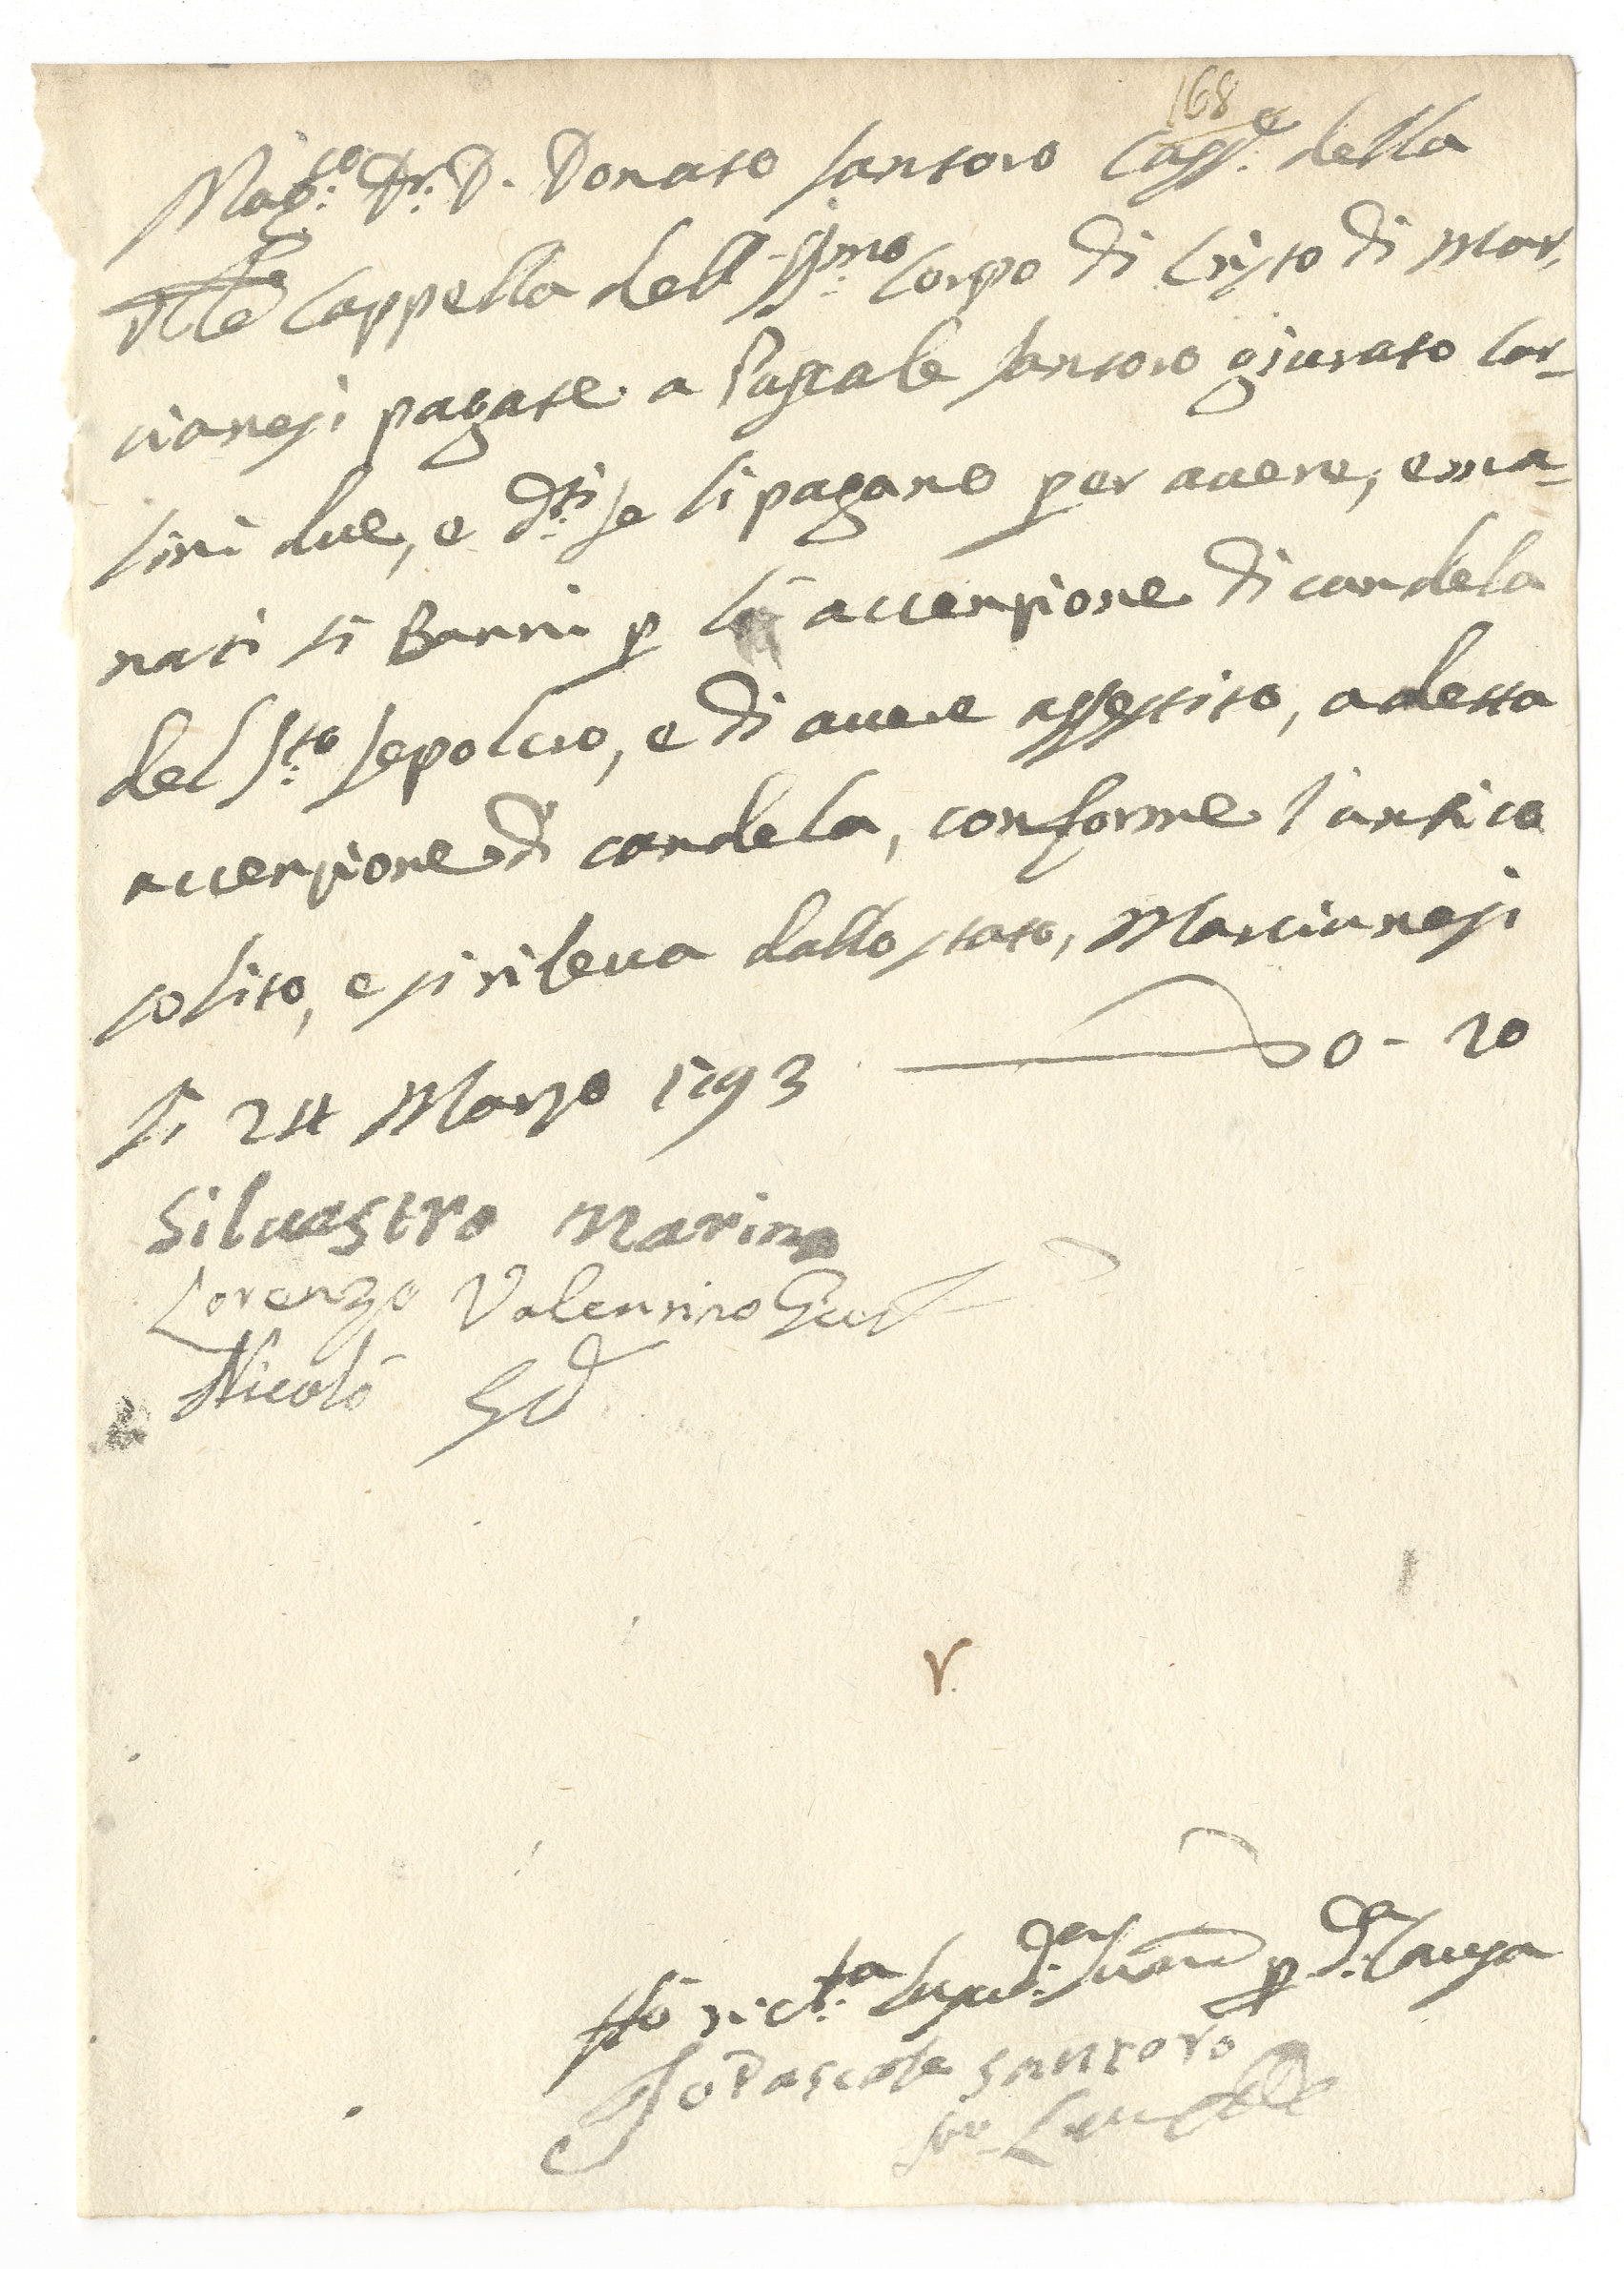 168
Mag:co Dr. D. Donato Santoro Cass:e della
Ven:le Cappella dell SS:mo Corpo di Cristo di Mar,
cianesi pagate a Pascale Santoro giurato Car-
lini due, e d:ti se li pagano per avere, ema-
nati li Banni p la accenzione di candela
del S:to Sepolcro, e di avere assestito, a detta
accenzione di candela, conforme l'antico
solito, e si rileva dallo stato, Marcianesi
li 24 Marzo 1793 0 - 20
Siluestro Marino
Lorenzo Valentino
Nicolò
V.
p d:a Causa
Io Pascale Santoro